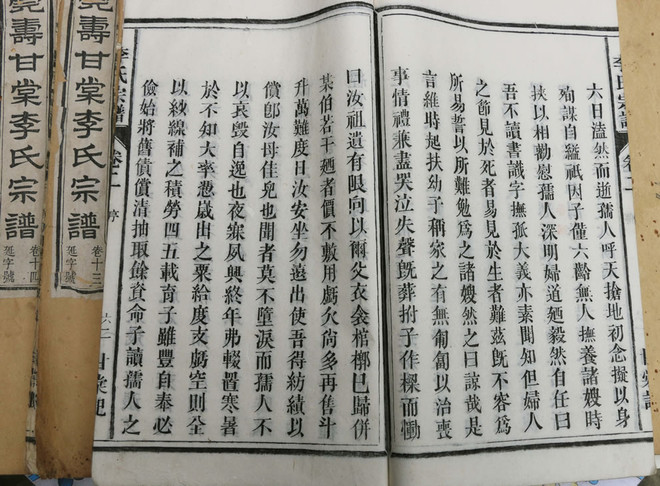 李氏宗譜
卷一
六日溘然而逝孺人呼天搶地初念擬以身
殉謀自縊祇因子僅六齡無人撫養諸嫂時
挾以相勸慰孺人深明婦道廼毅然自任曰
吾不讀書識字撫孤大義亦素聞知但婦人
之節見於死者易見於生者難茲旣不容為
所易誓以所難勉為之諸嫂然之曰諒哉是
言維時起扶幼子稱家之有無匍匐以治喪
事情禮兼盡哭泣失聲旣葬拊子作而慟
曰汝祖遺有眼向以爾父衣衾棺槨巳歸併
某伯若干廼者價不敷用虧欠尚多再售斗
升萬難度日汝安坐勿遠出使吾得紡績以
償郎汝母佳兒也聞者莫不墮淚而孺人不
以哀毀自逸也夜寐夙興終年弗輟置寒暑
於不知大率悉歲出之粟給度支虧空則全
以紗線補之積勞四五載育子雖豐自奉必
儉始將舊債償清抽取餘資命子讀孺人之
李氏宗譜
卷一
序
六二
甘棠記
壽甘棠李氏宗譜
卷十三
延字號
壽甘棠李氏宗譜
卷十四
延字號